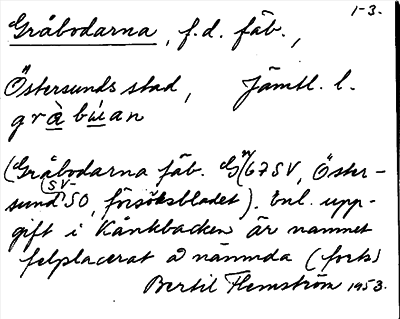 1-3.
Gråbodarna, f.d. fäb.,
Östersunds stad, Jämtl. l.
gràbu̇́an
(Gråbodarna fäb. G 67 SV, Öster-
sund SV-SO, försöksbladet). Enl. upp-
gift i Kånkbacken är namnet
felplacerat å nämnda (forts)
Bertil Flemström 1953.